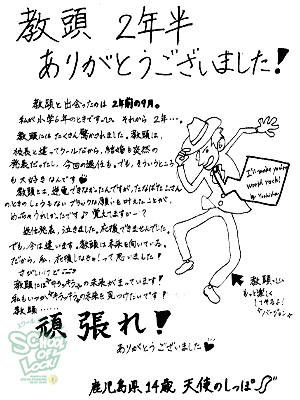 教頭 2年半
ありがとうございました!
教頭と出会ったのは 2年前の9月。
私が小学6年のときでした。それから 2年…。
教頭にはたくさん驚かされました。教頭は、
校長と違ってクールだから、結婚も突然の
発表だったし、今回の退任も。でも、そういうところ
も大好きなんです
教頭とは、逆電できなかったんですが、たなばたこさん
のときのしょうもない
めっちゃうれしかったです♪覚えてますかー?
退任発表、泣きました。応援できませんでした。
でも、今は違います。教頭は未来を向いている。
だから、私、応援しなきゃ!って思いました!
さびしいけど
教頭にはキラッキラの未来がまっています!
私もいつかキラッキラの未来を見つけたいです!
教頭……
頑張れ!
ありがとうございました
I'll make your
world rock!
by Yoshihisa
教頭
もっと楽しく
してやるよ!
バージョン
School
of
Lock
鹿児島県 14歳 天使のしっぽ